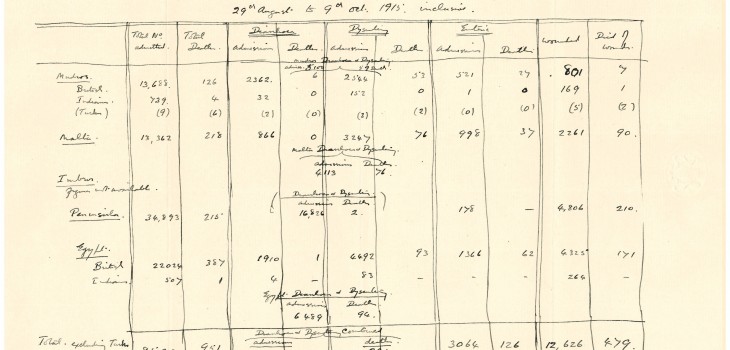 29th August to 9th Oct. 1915. inclusive.
Total No. admitted. Total Deaths. Diarrhoea Dysentery Enteric wounded Died of wounds.
admissions Deaths admissions Deaths admissions Deaths
Mudros Diarrhoea & Dysentery
Mudros. 13,688. 126 2362. 6 53 521 27 801 7
British
Indians 739. 4 32 0 152 0 1 0 169 1
(Turks) (9) (6) (2) (0) (2) (0) (0) (5) (2)
Malta 13,362 218 866 0 3247 76 998 37 2261 90.
Malta Diarrhoea & Dysentery.
admissions Deaths
4113 76.
Imbros.
figures not available.
Diarrhoea & Dysentery
admissions Deaths
Peninsula. 34,893 215 16,826 2. 178 — 4,806 210.
Egypt.
British 22024 387 1910 1 4492 93 1366 62 4325 171
Indians 507 1 4 — 83 — — — 264 —
Egypt Diarrhoea & Dysentery
admissions Deaths
6489 94.
Total. excluding Turks 951 Diarrhoea & Dysentery Combined 3064 126 12,626 479.
admissions deaths